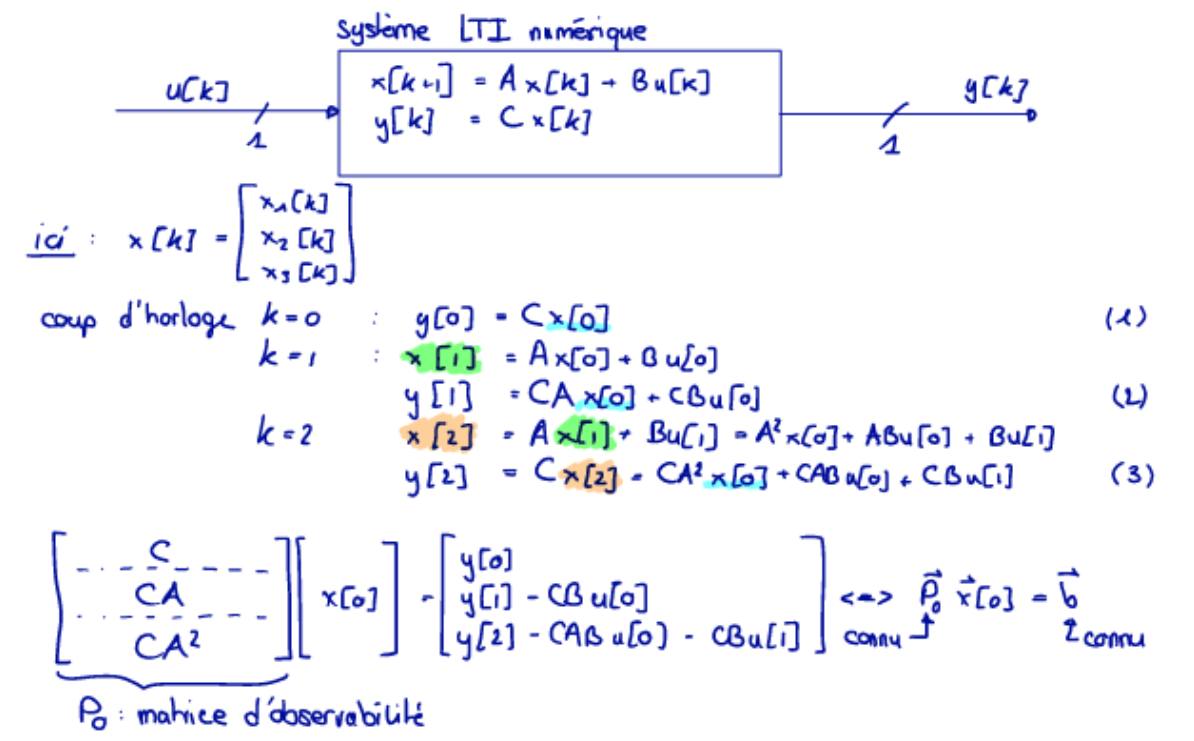 Système LTI numérique
u[k]
1
x[k+1] = A x[k] + B u[k]
y[k] = C x[k]
y[k]
1
ici : x[k] = [ x₁[k]
x₂[k]
x₃[k] ]
coup d'horloge k=0 : y[0] = C x[0] (1)
k=1 : x[1] = A x[0] + B u[0]
y[1] = CA x[0] + CB u[0] (2)
k=2 x[2] = A x[1] + Bu[1] = A² x[0] + ABu[0] + Bu[1]
y[2] = C x[2] = CA² x[0] + CAB u[0] + CB u[1] (3)
[ C
CA
CA² ] [ x[0] ] = [ y[0]
y[1] - CB u[0]
y[2] - CAB u[0] - CBu[1] ] <=> P⃗₀ x⃗[0] = b⃗
connu connu
P₀ : matrice d'observabilité